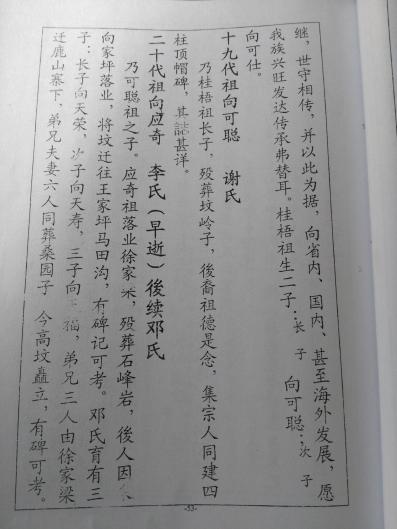 继，世守相传，并以此为据，向省内、国内、甚至海外发展，愿
我族兴旺发达传承弗替耳。桂梧祖生二子：长子向可聪；次子
向可仕。
十九代祖向可聪　谢氏
乃桂梧祖长子，殁葬坟岭子，後裔祖德是念，集宗人同建四
柱顶帽碑，其誌甚详。
二十代祖向应奇　李氏（早逝）後续邓氏
乃可聪祖之子。应奇祖落业徐家梁，殁葬石峰岩，後人因
向家坪落业，将坟迁往王家坪马田沟，有碑记可考。邓氏育有三
子：长子向天荣，次子向天寿，三子向天福，弟兄三人由徐家梁
迁鹿山寨下，弟兄夫妻六人同葬桑园子　今高坟矗立，有碑可考。
-53-